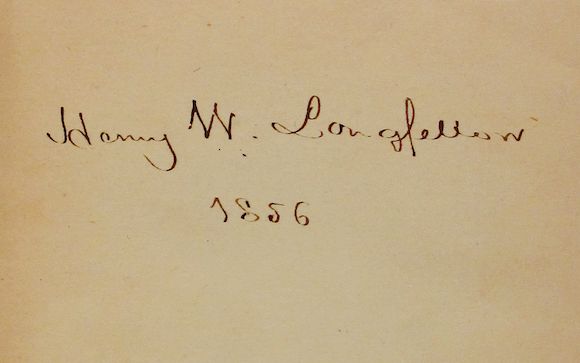 Henry W. Longfellow
1856